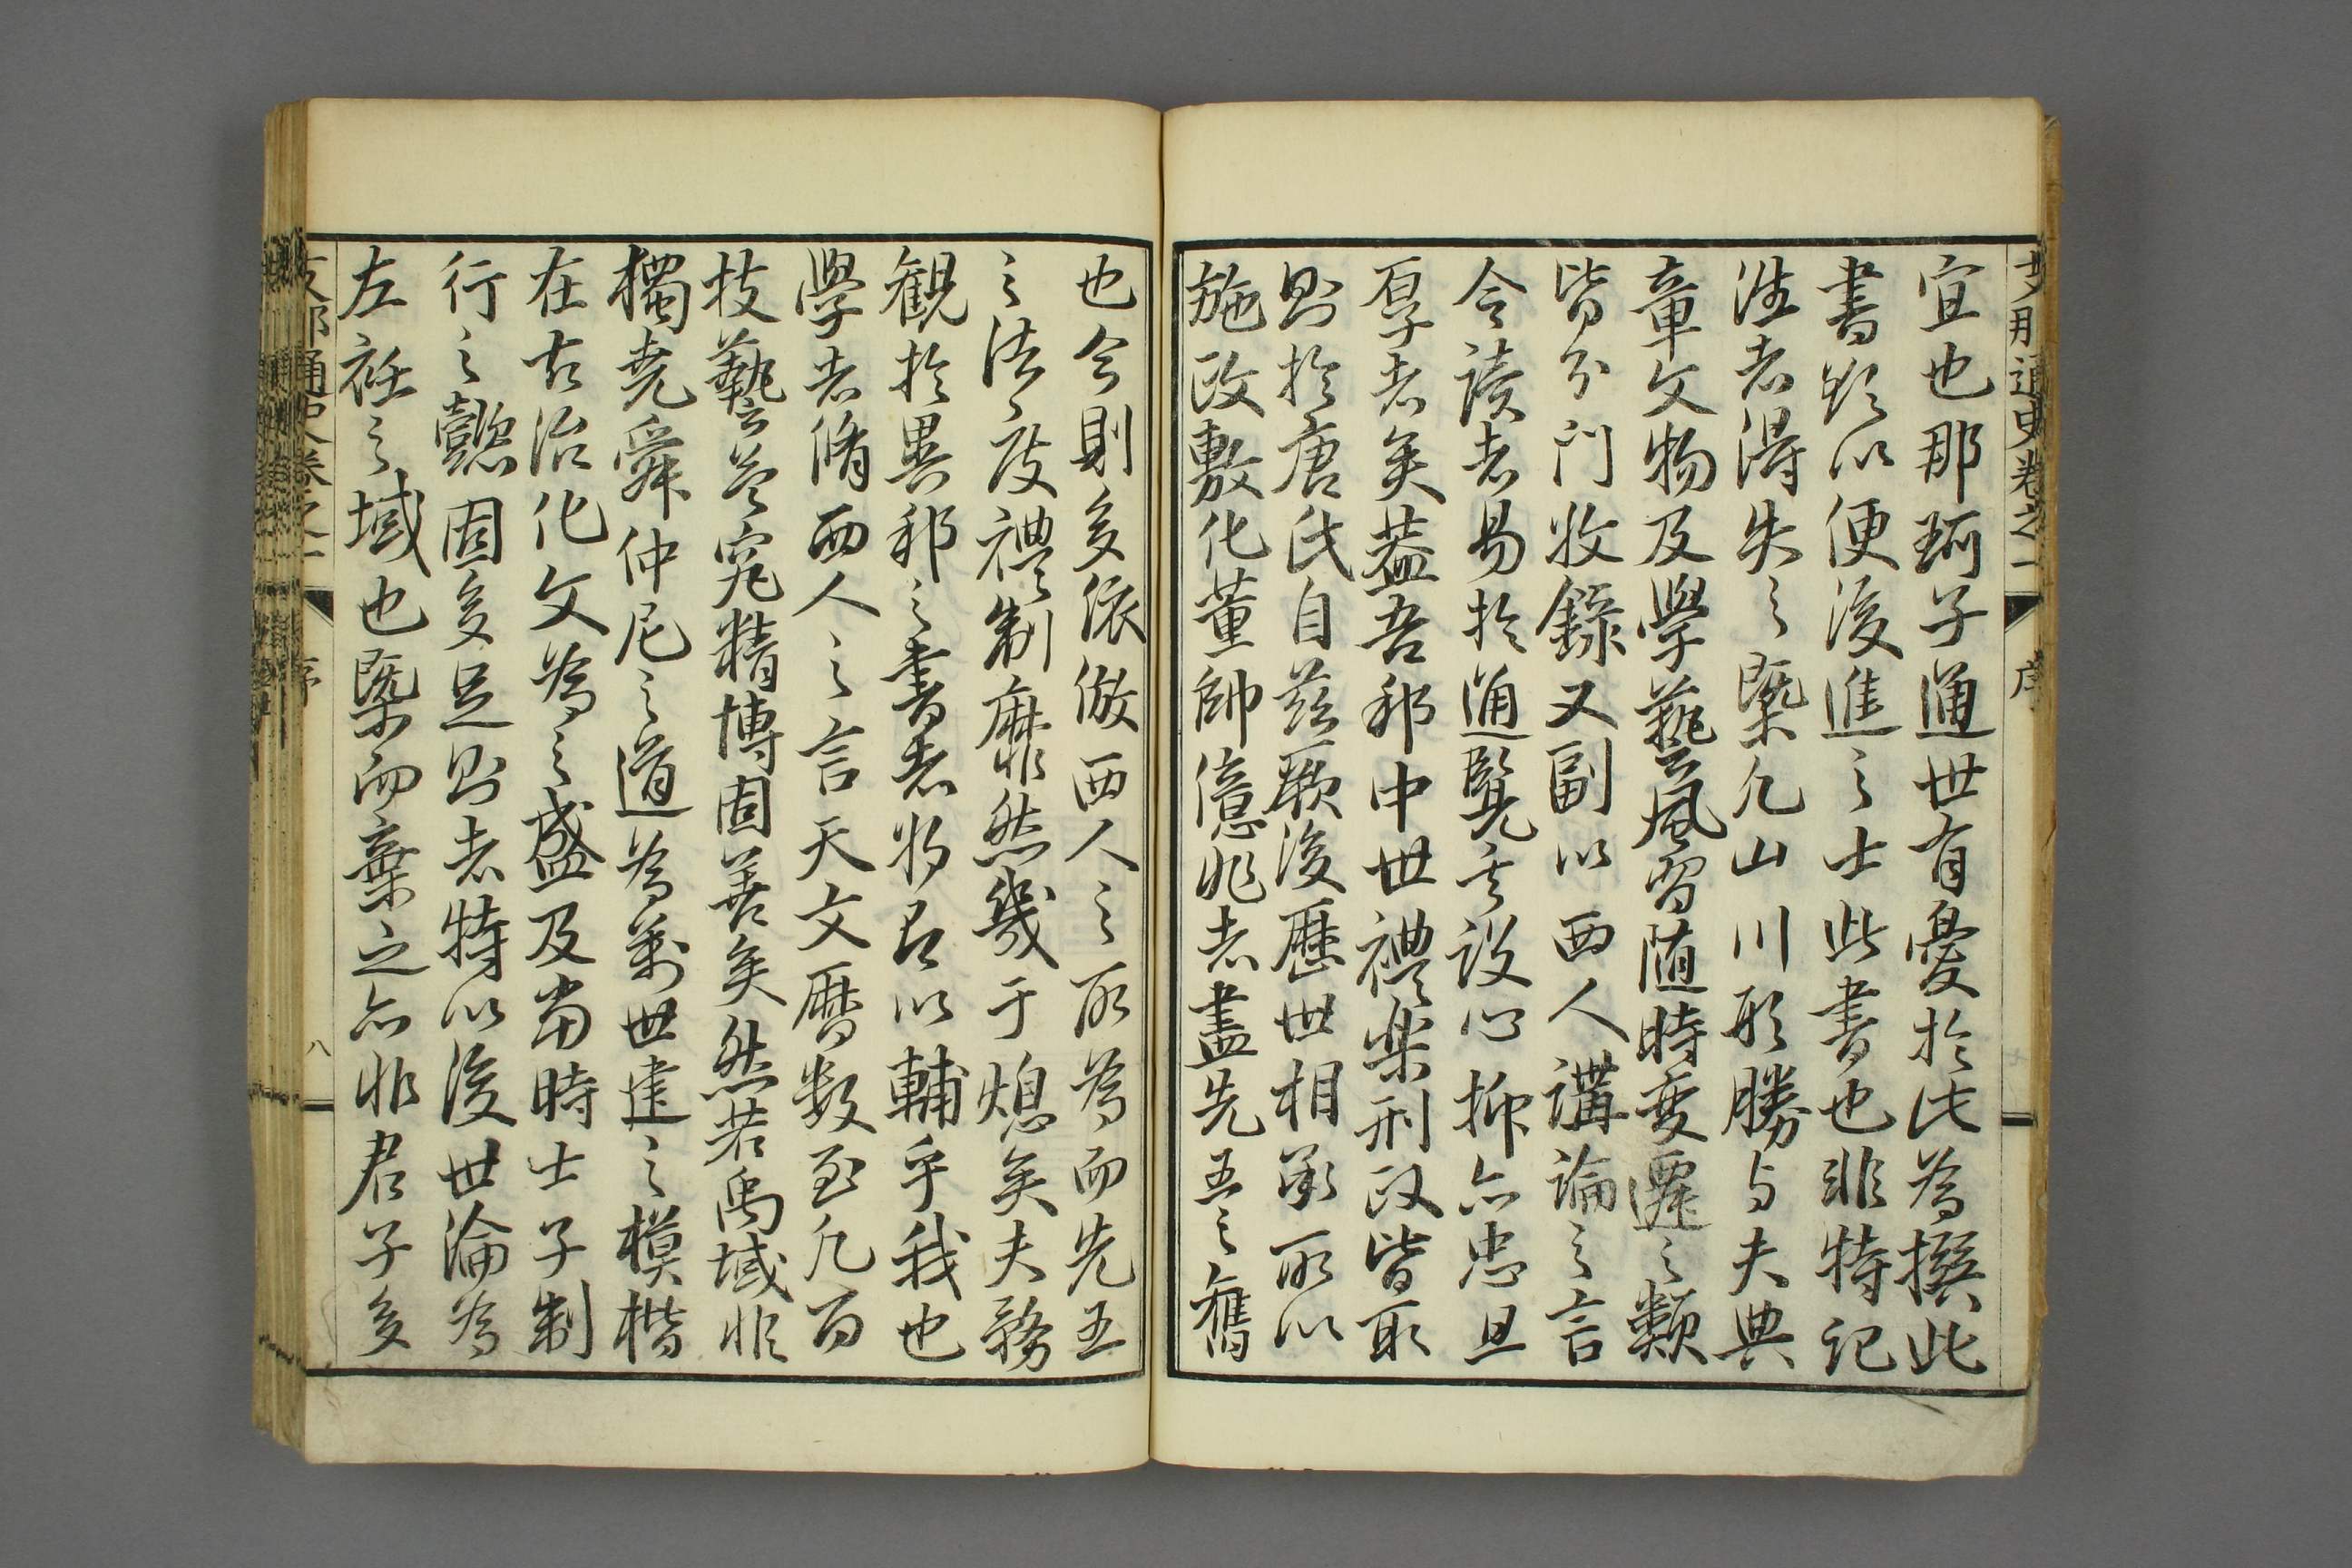 支那通史卷之一
序
宜也那珂子通世有憂於此為撰此
書欲以便後進之士此書也非特記
往者得失之槩凡山川形勝与夫典
章文物及學藝風習随時変遷之類
皆分門收錄又副以西人講論之言
令讀者易於通覧其設心抑亦忠且
厚者矣蓋吾邦中世禮楽刑政皆取
則於唐氏自茲厥後歷世相承所以
施政敷化董帥億兆者盡先王之舊
也今則多依倣西人之所為而先王
之法度禮制靡然幾于熄矣夫務
観於異邦之書者將召以輔乎我也
學者脩西人之言天文暦数至凡百
技藝益究精博固善矣然若禹域非
獨堯舜仲尼之道為萬世建之模楷
在古治化文為之盛及当時士子制
行之懿固多足則者特以後世淪為
左衽之域也槩而棄之亦非君子多
支那通史卷之一
序
八